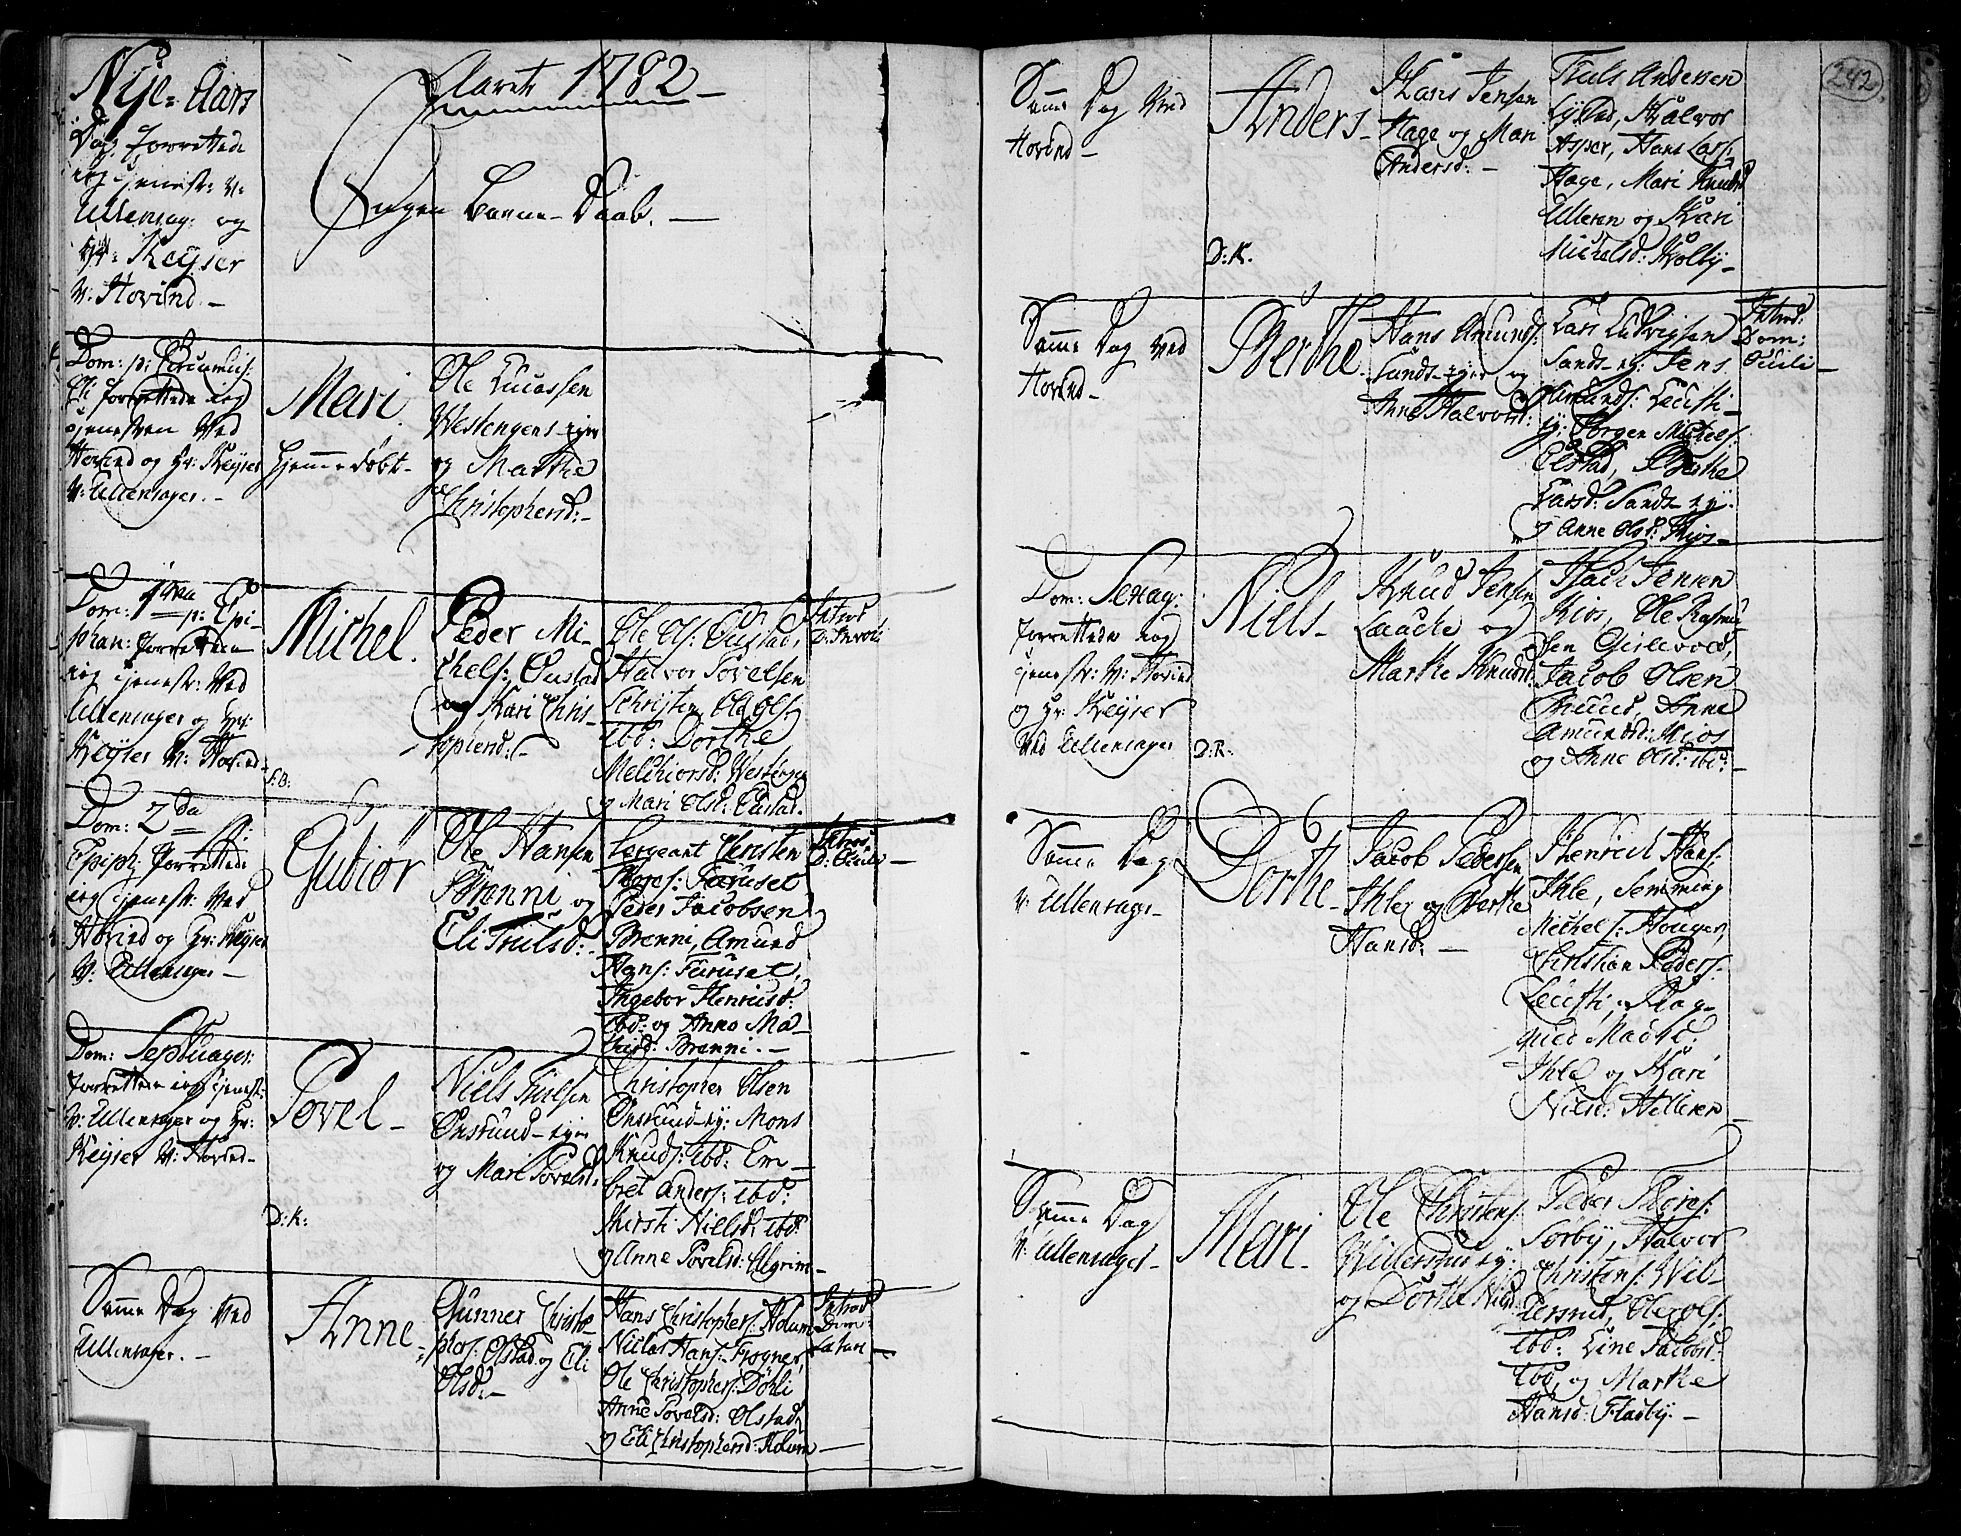 Aaret 1782 –
Nye-Aars
Dag forrettede
ieg tienest: v:
Ullensag: og
Hr: Keyser
v: Hovind. –
Ingen Barne-Daab. –
Dom: p: Circumcis:
forrettede ieg
tienesten ved
Hovind og Hr: Keyser
v: Ullensager. –
Mari
hjemmedøbt –
Ole Lucassen
Westengens-eyer
og Marthe
Christophersd: –
Dom: 1ma p: Epi-
phan: forrettede
ieg tienest: ved
Ullensager og Hr:
Keyser v: Hovind –
Michel.
Peder Mi-
chels: Oustad
og Kari Chris-
tophersd: –
Ole Ols: Oustad,
Halvor Povelsen
Ole Ols:
ibd: Dorthe
Melchiorsd: Westenge
og Mari Olsd: Oustad.
Introd:
F:B:
Dom: 2da p:
Epiph: forrettede
ieg tienest: ved
Hovind og Hr: Keyser
v: Ullensager –
Gubiør
Ole Hansen
Brenni og
Eli Trulsd: –
Sergeant Christen
Thores: Furuset
Peder Jacobsen
Brenni, Amund
Hans: Furuset,
Ingebor Henricsd:
ibd: og Anne Ma-
thisd: Brenni. –
Introd:
D: Oculi –
Dom: Septuages:
forrettede ieg tienest:
v: Ullensager og Hr:
Keyser v: Hovind –
Povel –
D:K:
Niels Trulsen
Onsrund-eyer
og Mari Povelsd:
Christopher Olsen
Onsrund-ey: Mons
Knuds: ibd: Em-
bret Anders: ibd:
Kirsti Nielsd: ibd:
og Anne Povelsd: Algrim –
Samme Dag ved
Ullensager. –
Anne –
Gunner Christo-
phers: Olstad og Eli
Olsd: –
Hans Christophers: Holum
Niclas Hans: Frogner,
Ole Christophers: Døhli
Anne Povelsd: Olstad
og Eli Christophersd: Holum –
Introd:
Dom:
Lætare –
242
Samme Dag ved
Hovind –
Anders –
D:K.
Hans Jensen
Hage og Mari
Andersd: –
Truls Andersen
Lystad, Halvor
Asper, Hans Lars:
Hage, Mari Knudsd
Ulleren og Kari
Michelsd: Kolby –
Samme Dag ved
Hovind –
Berthe.
Hans Amunds:
Sunds-eyer og
Anne Halvorsd:
Lars Ludvigsen
Sands-ey: Jens
Amunds:
Jørgen Michels:
Elstad, Berthe
Larsd: Sands-ey:
og Anne Olsd: Kios –
Introd:
Dom:
Oculi –
Dom: Sexag:
forrettede ieg
tienest: v: Hovind
og Hr: Keyser
ved Ullensager
D:K:
Niels –
Knud Jensen
Laache og
Marthe Knudsd:
Jensen
Kios, Ole Rasmu-
sen Gislevold,
Jacob Olsen
Anne
Amundsd: Mios
og Anne Olsd: ibd: –
Samme Dag
v: Ullensager –
Dorthe –
Jacob Pedersen
Ihler og Berthe
Hansd: –
Henrich Hans:
Ihle, Semming
Michels: Houger,
Christian Peders:
Rag-
nild Madsd:
Ihle og Kari
Nilsd: Helleren –
Samme Dag
v: Ullensager –
Mari –
Ole Christens:
Willersrud ey:
og Dorthe Nilsd:
Peder Thores:
Sørby, Halvor
Christens: Wil-
lersrud, Ole Ols:
ibd: Line Jacobsd:
ibd, og Marthe
Hansd: Fladby. –